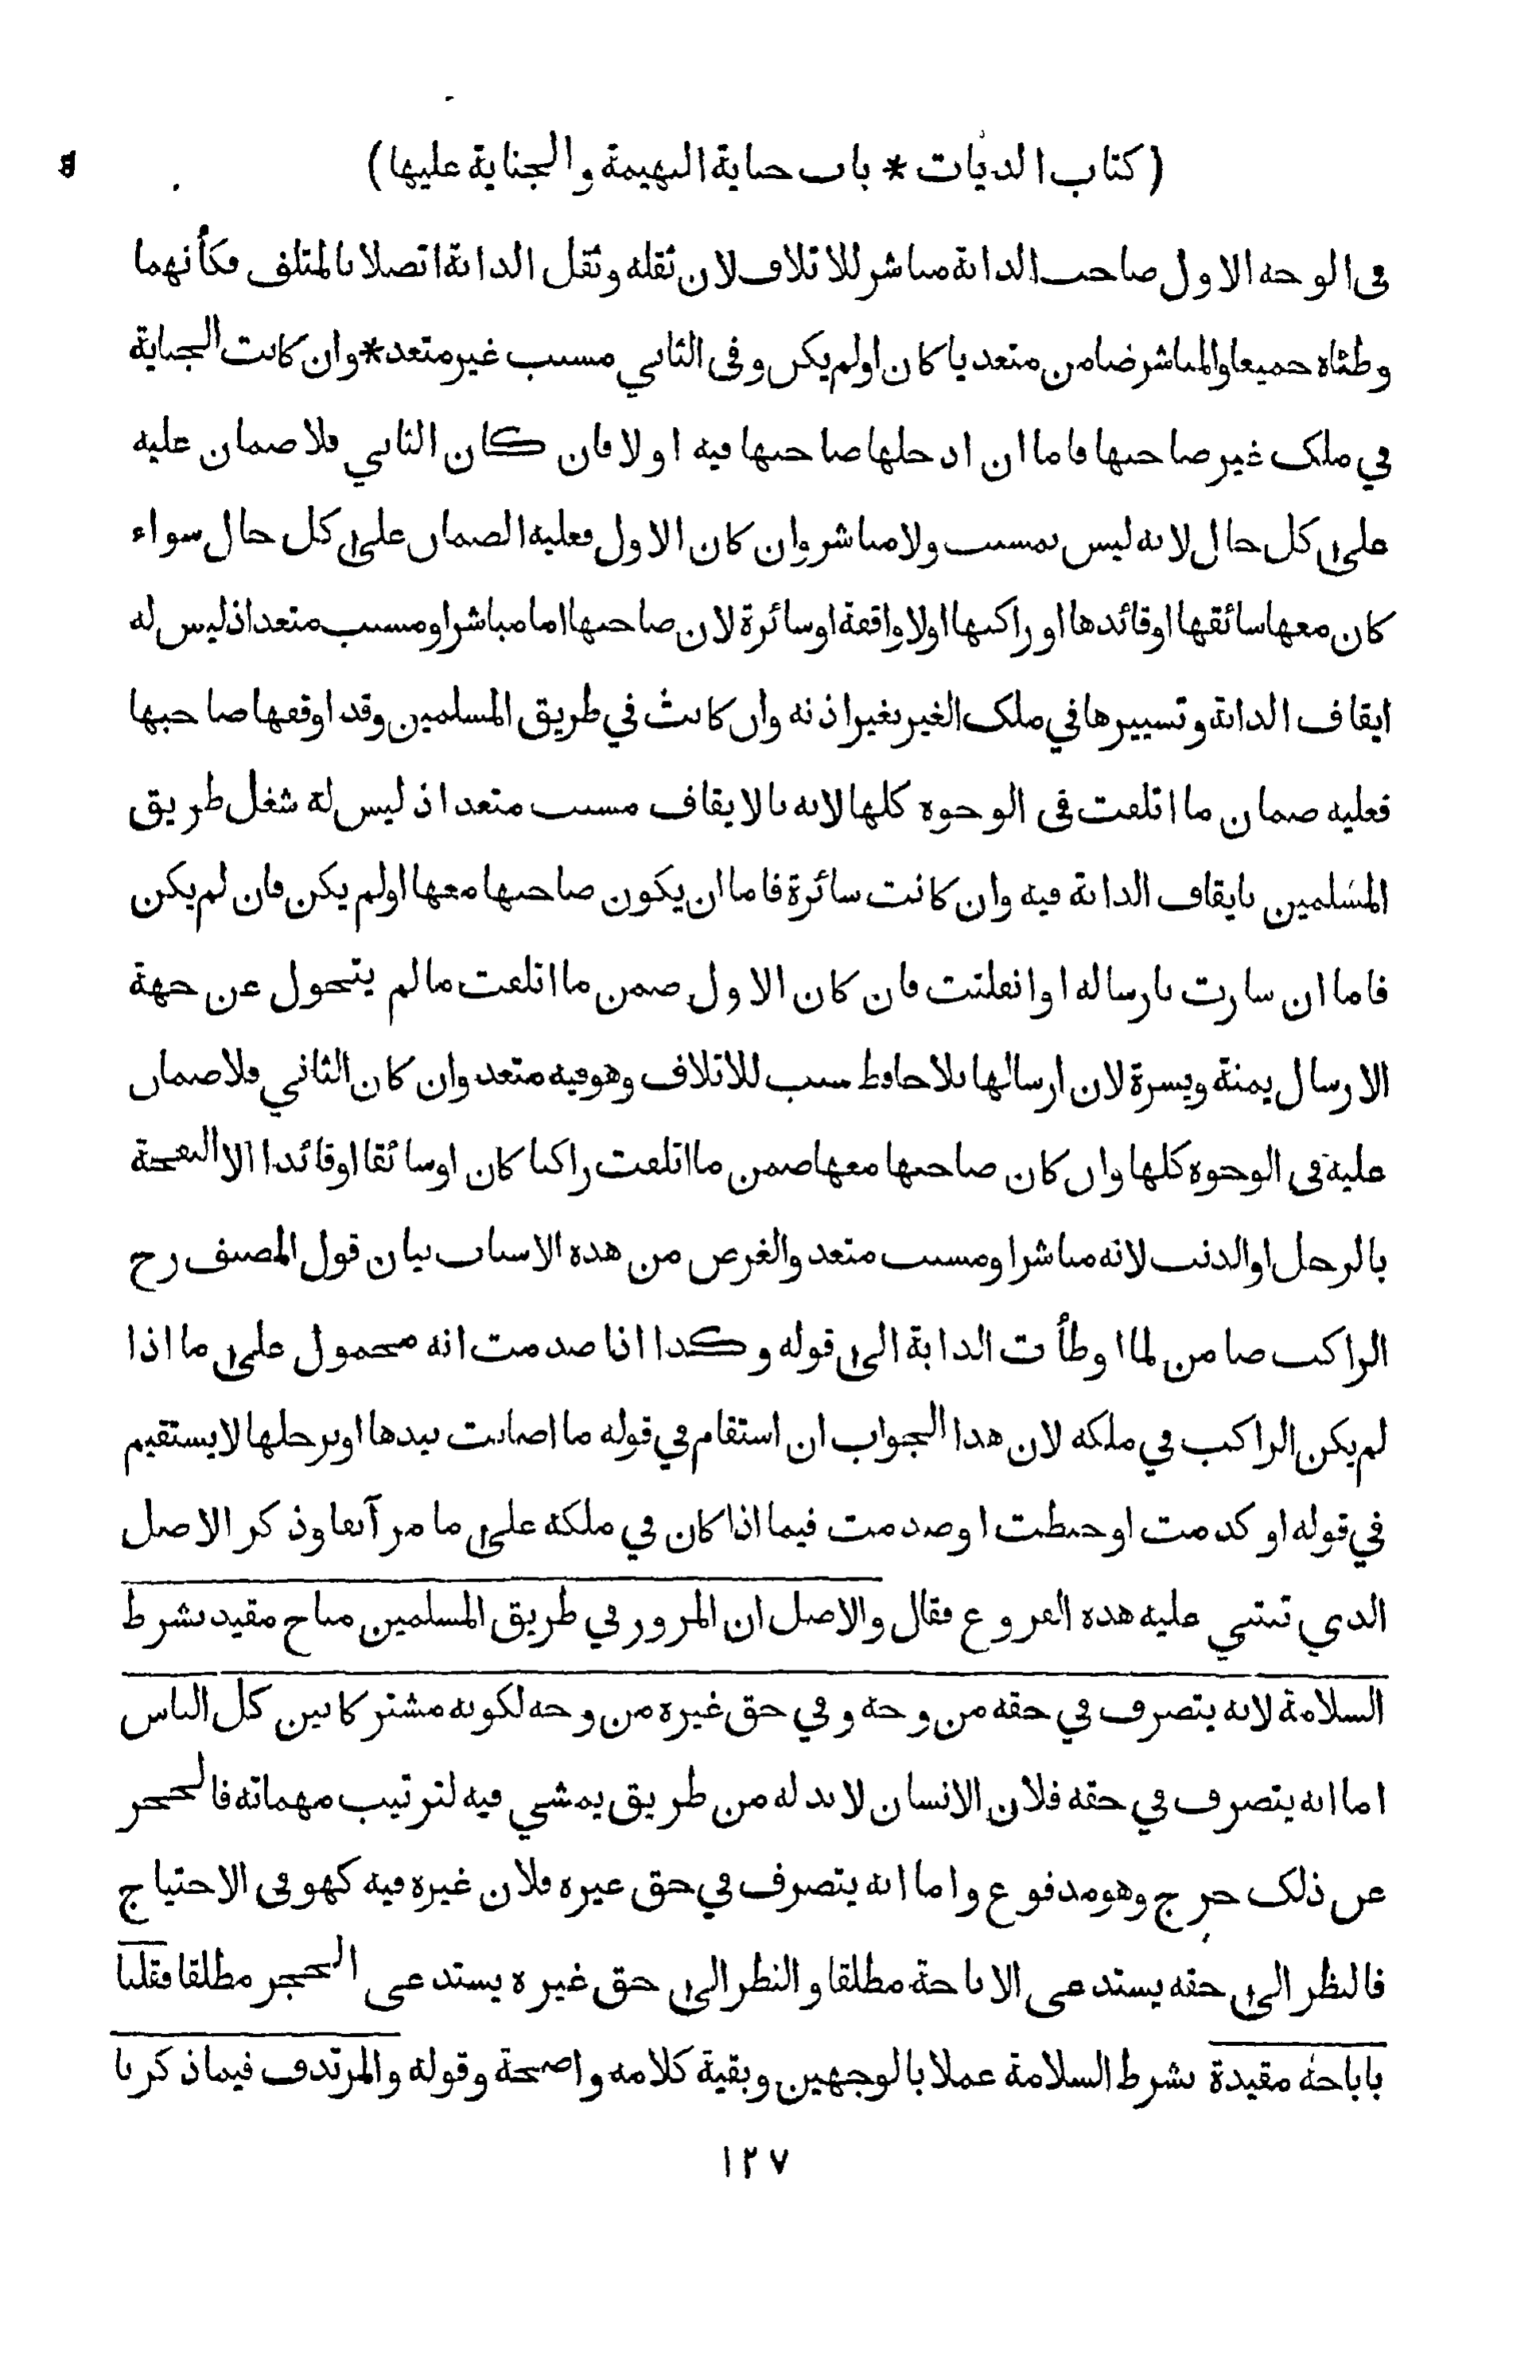 (كتاب الديات * باب جناية البهيمة والجناية عليها)
في الوجه الاول صاحب الدابة مباشر للاتلاف لان ثقله وثقل الدابة اتصلا بالمتلف فكأنهما
وطئاه جميعا والمباشر ضامن متعديا كان اولم يكن وفي الثاني مسبب غير متعد * وان كانت الجناية
في ملك غير صاحبها فاما ان ادخلها صاحبها فيه اولا فان كان الثاني فلا ضمان عليه
على كل حال لانه ليس بمسبب ولا مباشر وان كان الاول فعليه الضمان على كل حال سواء
كان معها سائقها او قائدها او راكبها اولا واقفة او سائرة لان صاحبها اما مباشر او مسبب متعد اذ ليس له
ايقاف الدابة وتسييرها في ملك الغير بغير اذنه وان كانت في طريق المسلمين وقد اوقفها صاحبها
فعليه ضمان ما اتلفت في الوجوه كلها لانه بالايقاف مسبب متعد اذ ليس له شغل طريق
المسلمين بايقاف الدابة فيه وان كانت سائرة فاما ان يكون صاحبها معها اولم يكن فان لم يكن
فاما ان سارت بارساله او انفلتت فان كان الاول ضمن ما اتلفت ما لم يتحول عن جهة
الارسال يمنة ويسرة لان ارسالها بلا حافظ سبب للاتلاف وهو فيه متعد وان كان الثاني فلا ضمان
عليه في الوجوه كلها وان كان صاحبها معها ضمن ما اتلفت راكبا كان او سائقا او قائدا الا النفحة
بالرجل او الذنب لانه مباشر او مسبب متعد والغرض من هذه الاسباب بيان قول المصنف رح
الراكب ضامن لما اوطأت الدابة الى قوله وكذا اذا صدمت انه محمول على ما اذا
لم يكن الراكب في ملكه لان هذا الجواب ان استقام في قوله ما اصابت بيدها او برجلها لا يستقيم
في قوله او كدمت او خبطت او صدمت فيما اذا كان في ملكه على ما مر آنفا وذكر الاصل
الذي تبتني عليه هذه الفروع فقال والاصل ان المرور في طريق المسلمين مباح مقيد بشرط
السلامة لانه يتصرف في حقه من وجه وفي حق غيره من وجه لكونه مشتركا بين كل الناس
اما انه يتصرف في حقه فلان الانسان لا بد له من طريق يمشي فيه لترتيب مهماته فالحجر
عن ذلك حرج وهو مدفوع واما انه يتصرف في حق غيره فلان غيره فيه كهو في الاحتياج
فالنظر الى حقه يستدعي الاباحة مطلقا والنظر الى حق غيره يستدعي الحجر مطلقا فقلنا
باباحة مقيدة بشرط السلامة عملا بالوجهين وبقية كلامه واضحة وقوله والمرتدف فيما ذكرنا
١٢٧